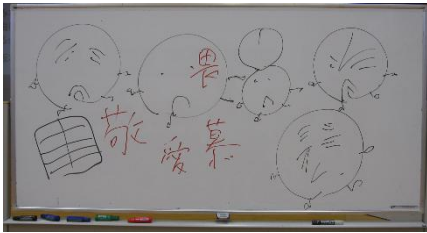 畏
敬
愛
慕